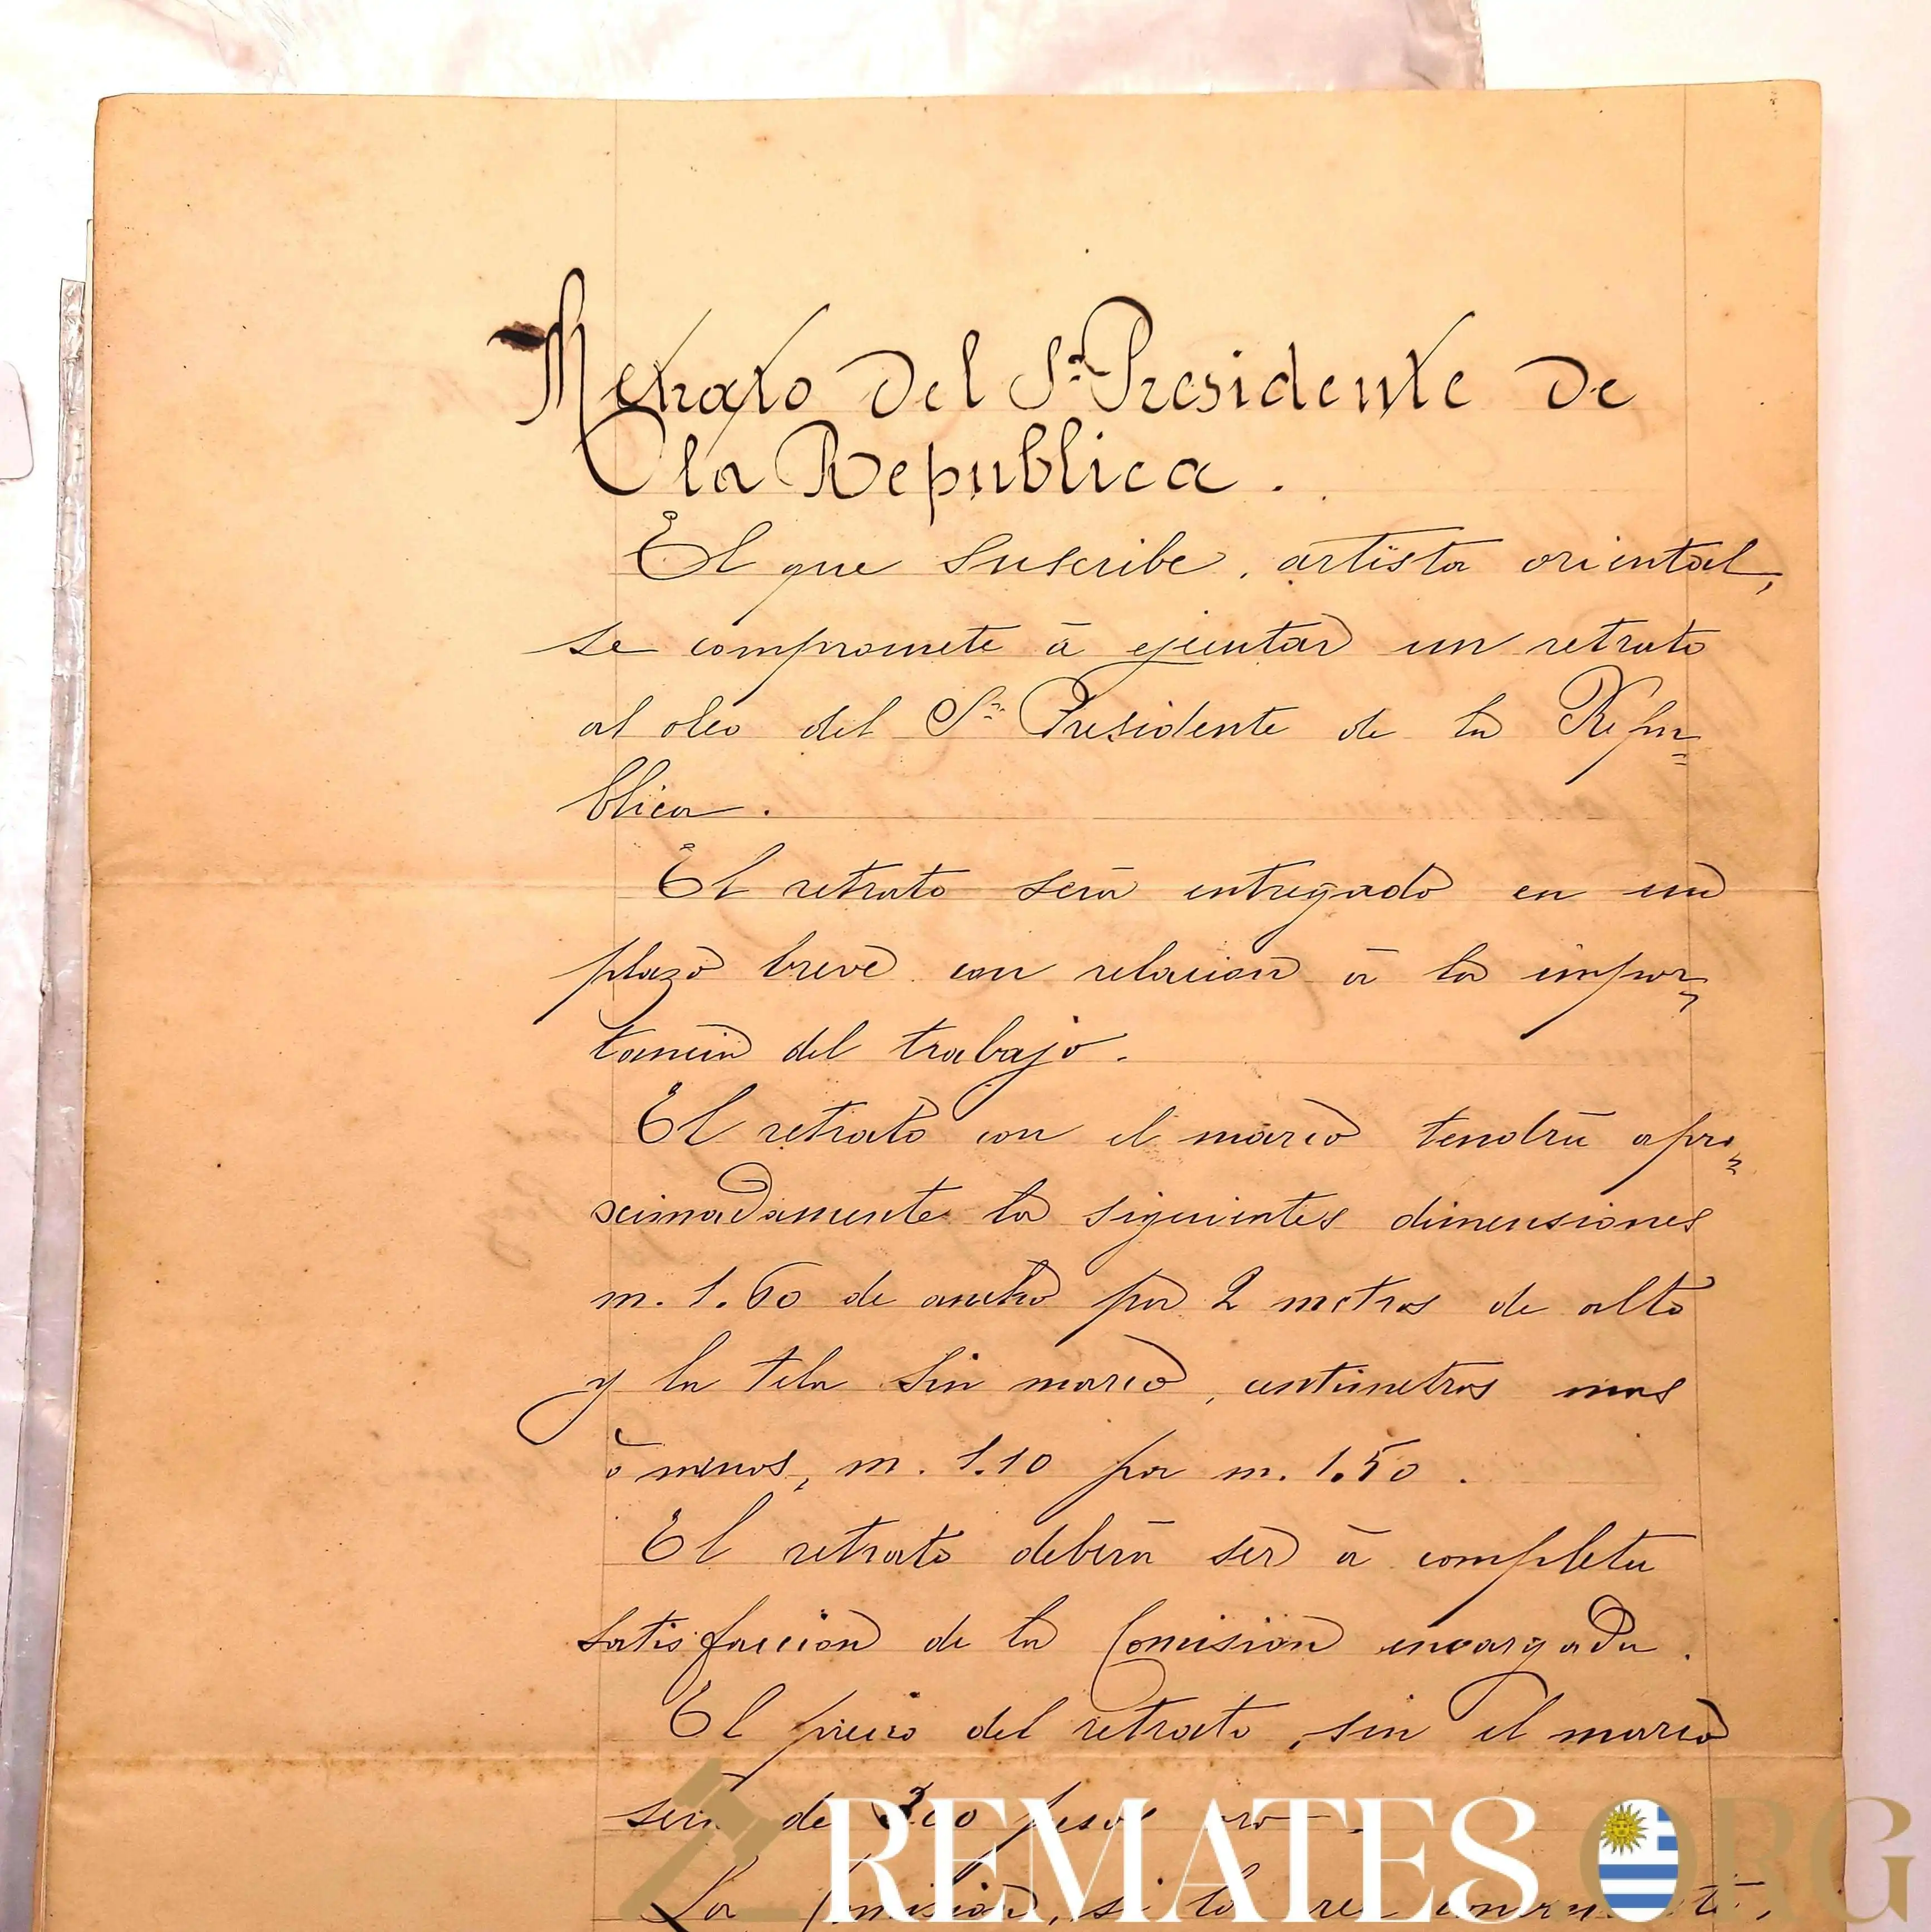 Retrato del Sr. Presidente de
la Republica.
El que suscribe, artista oriental,
se compromete á ejecutar un retrato
al oleo del Sr. Presidente de la Repú=
blica.
El retrato será entregado en un
plazo breve con relacion á la impor=
tancia del trabajo.
El retrato con el marco tendrá apro=
ximadamente la siguientes dimensiones
m. 1.60 de ancho por 2 metros de alto
y la tela sin marco, centimetros mas
ó menos, m. 1.10 por m. 1.50.
El retrato deberá ser á completa
satisfaccion de la Comision encargada.
El precio del retrato, sin el marco
será de 300 pesos oro.
La Comision, si lo
REMATES ORG